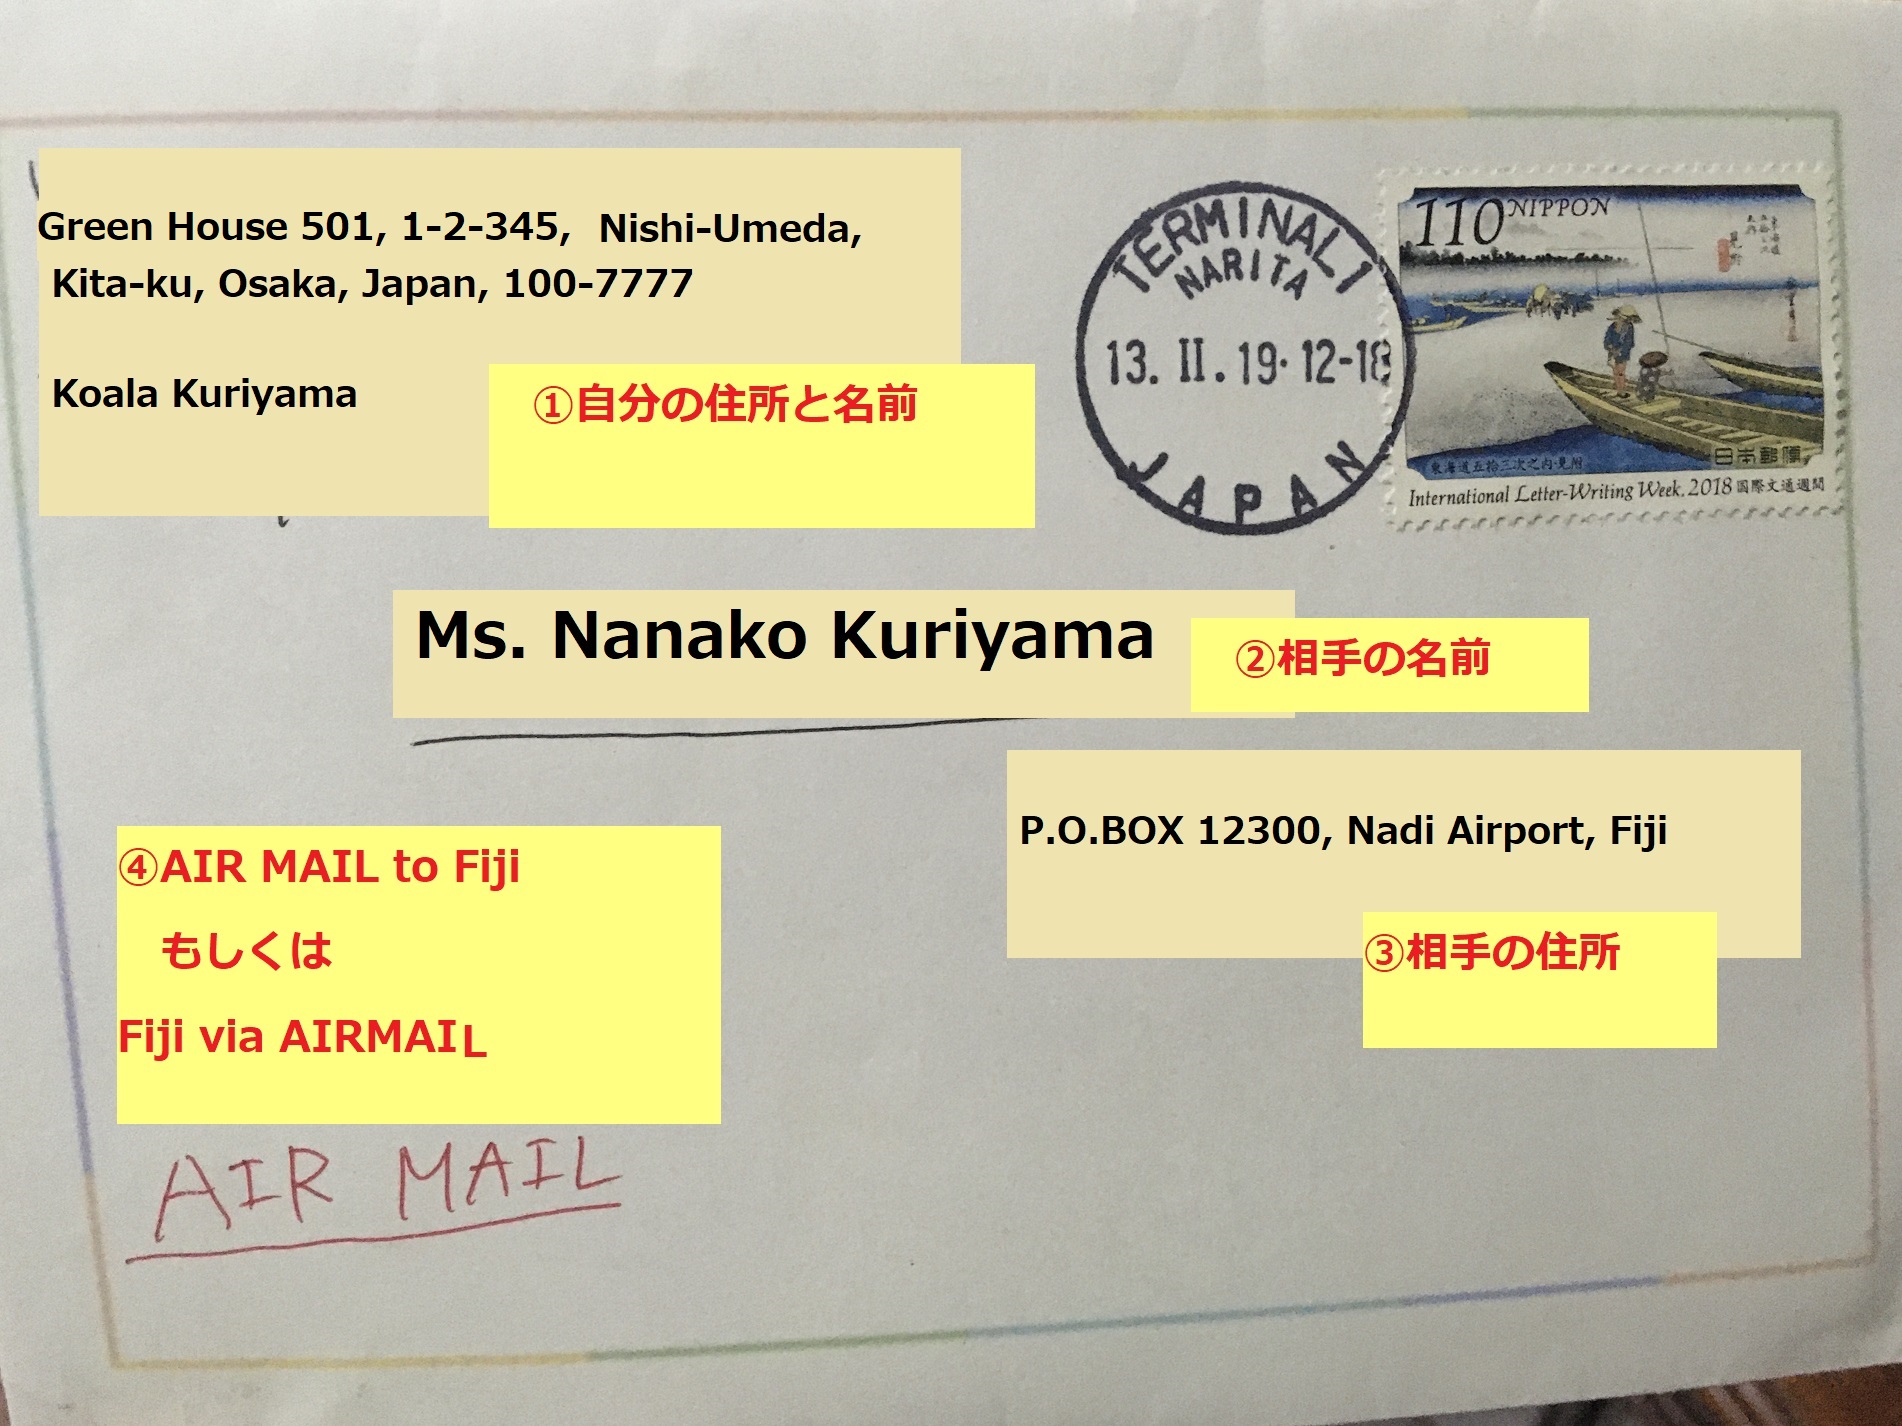 Green House 501, 1-2-345, Nishi-Umeda,
Kita-ku, Osaka, Japan, 100-7777
Koala Kuriyama
①自分の住所と名前
TERMINAL 1
NARITA
13. II. 19. 12-18
JAPAN
110 NIPPON
東海道五拾三次之内・見附
日本郵便
International Letter-Writing Week, 2018 国際文通週間
Ms. Nanako Kuriyama
②相手の名前
P.O.BOX 12300, Nadi Airport, Fiji
③相手の住所
④AIR MAIL to Fiji
もしくは
Fiji via AIRMAIL
AIR MAIL